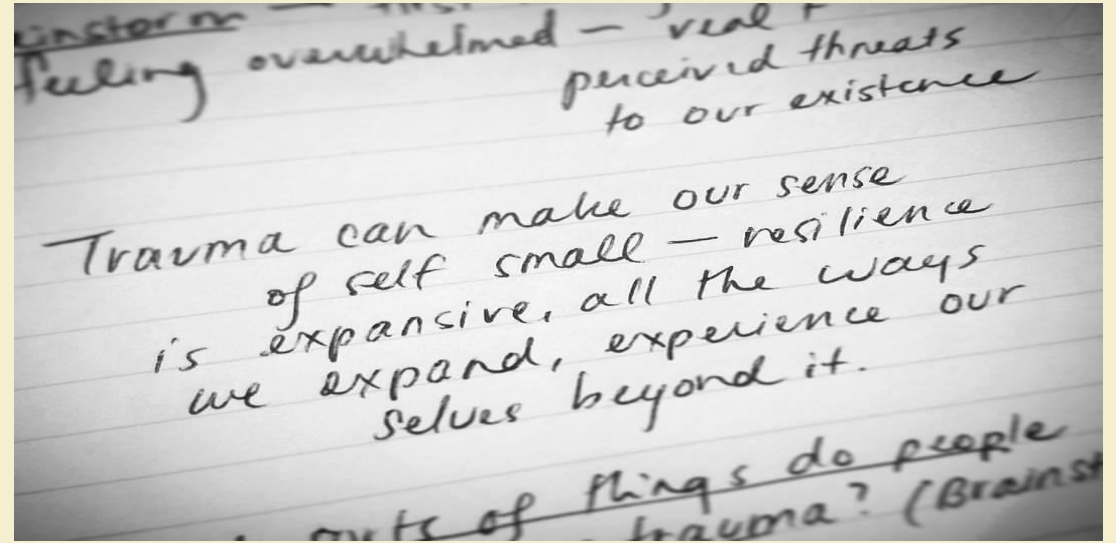 feeling overwhelmed — real +
perceived threats
to our existence
Trauma can make our sense
of self small — resilience
is expansive, all the ways
we expand, experience our
selves beyond it.
of things do people
trauma? (Brainst